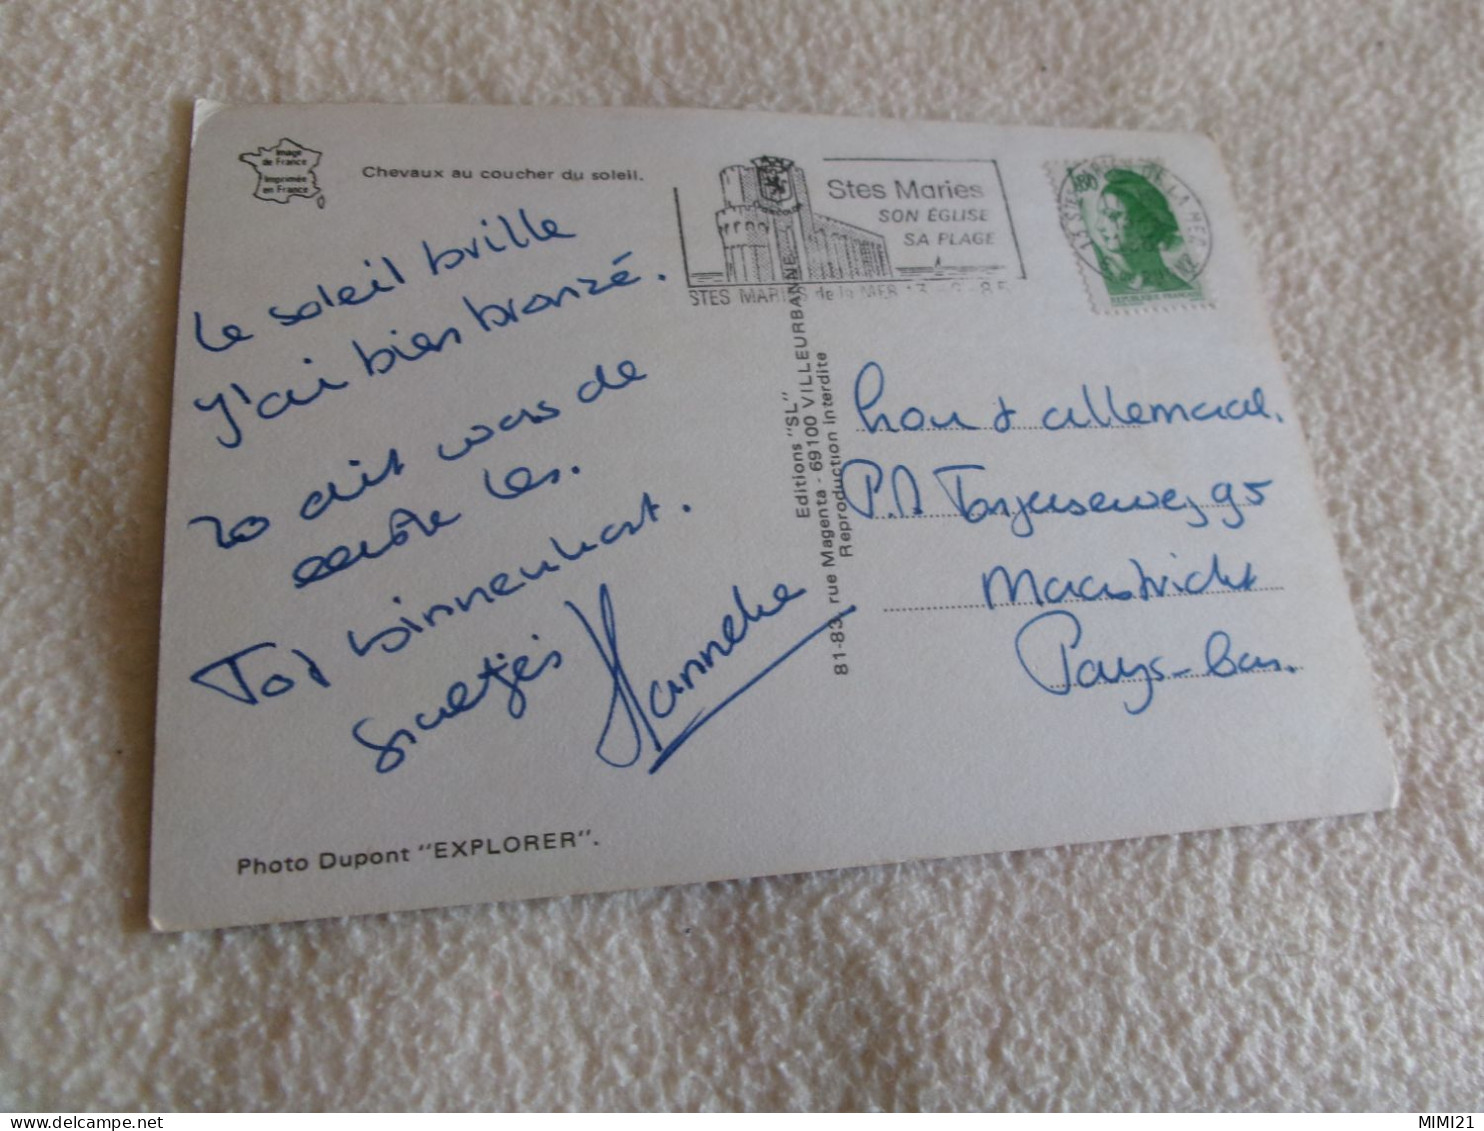 Image
de France
Imprimée
en France
Chevaux au coucher du soleil.
Le soleil brille
J'ai bien bronzé.
zo dit was de
eerste les.
Tot binnenkort.
groetjes Hanneke
Photo Dupont "EXPLORER".
Editions "SL"
81-83, rue Magenta - 69100 VILLEURBANNE
Reproduction interdite
Stes Maries
SON ÉGLISE
SA PLAGE
STES MARIES de la MER 13 - 9 - 85
DE LA MER
1,80
REPUBLIQUE FRANCAISE
allemaal.
95
Maastricht
Pays-bas.
delcampe.net
MIMI21